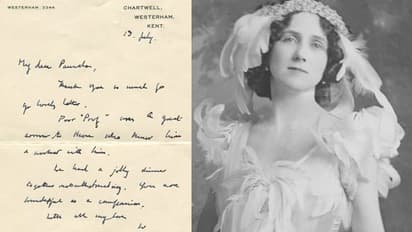 WESTERHAM 3344.
CHARTWELL,
WESTERHAM,
KENT.
July.
My dear Pamela,
Thank you so much for
lovely letter.
Poor "Prof" was a great
to those who knew him
& worked with him.
We had a jolly dinner
together notwithstanding. You are
wonderful as a companion.
With all my love
W